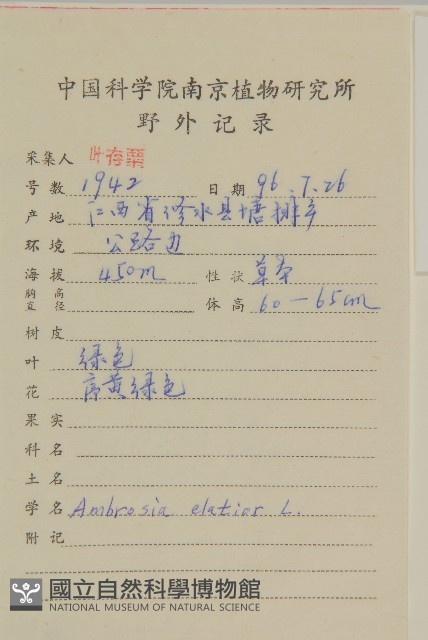 中国科学院南京植物研究所
野外记录
采集人 叶存粟
号数 1942 日期 96.7.26
产地 江西省修水县塘排乡
环境 公路边
海拔 450m 性状 草本
胸高直径 体高 60—65cm
树皮
叶 绿色
花 序黄绿色
果实
科名
土名
学名 Ambrosia elatior L.
附记
國立自然科學博物館
NATIONAL MUSEUM OF NATURAL SCIENCE